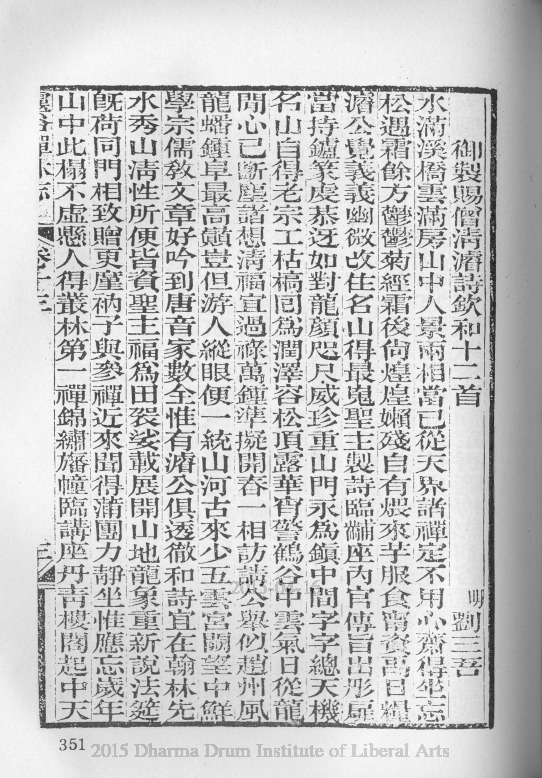 御製賜僧清濬詩欽和十二首 明劉三吾
水滿溪橋雲滿房山中人景兩相當已從天界諧禪定不用心齋得坐忘
松遇霜餘方鬱鬱菊經霜後尙煌煌嬾殘自有煨來芋服食甯資萬日糧
濬公覺義義幽微改住名山得最嵬聖主製詩臨黼座內官傳旨出彤扉
當持鑪篆虔恭迓如對龍顏咫尺威珍重山門永爲鎭中間字字總天機
名山自得老宗工枯槁囘爲潤澤容松頂露華宵警鶴谷中雲氣日從龍
閒心已斷塵諸想淸福宜過祿萬鍾準擬開春一相訪請公與似趙州風
龍蟠鍾阜最高巓豈但游人縱眼便一統山河古來少五雲宮闕望中鮮
學宗儒敎文章好吟到唐音家數全惟有濬公俱透徹和詩宜在翰林先
水秀山淸性所便皆資聖主福爲田袈裟載展開山地龍象重新說法筵
旣荷同門相致贈更麾衲子與參禪近來聞得蒲團力靜坐惟應忘歲年
山中此榻不虛懸人得叢林第一禪錦繡旛幢臨講座丹靑樓閣起中天
靈谷禪林志 卷十三 三
351
2015 Dharma Drum Institute of Liberal Arts